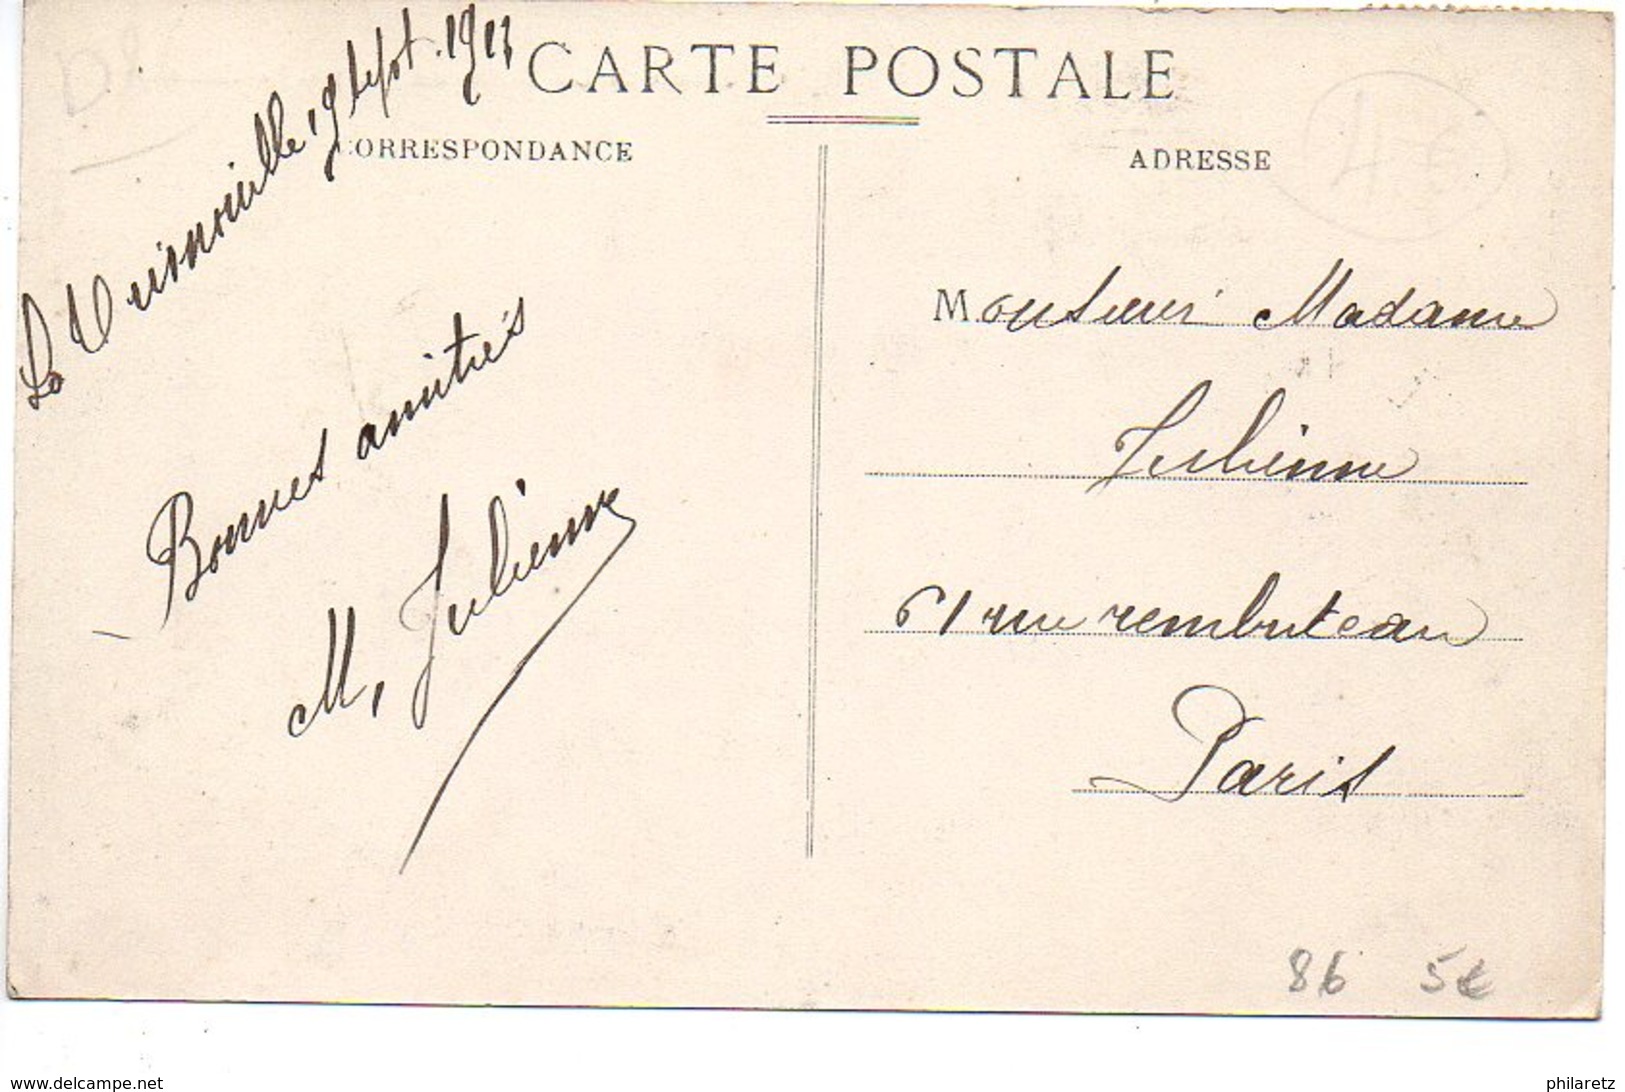 CARTE POSTALE
CORRESPONDANCE
ADRESSE
La 19 Sept. 1913
Bonnes amitiés
M. Julienne
Monsieur Madame
Julienne
61 rue rembuteau
Paris
4€
86 5€
www.delcampe.net
philaretz